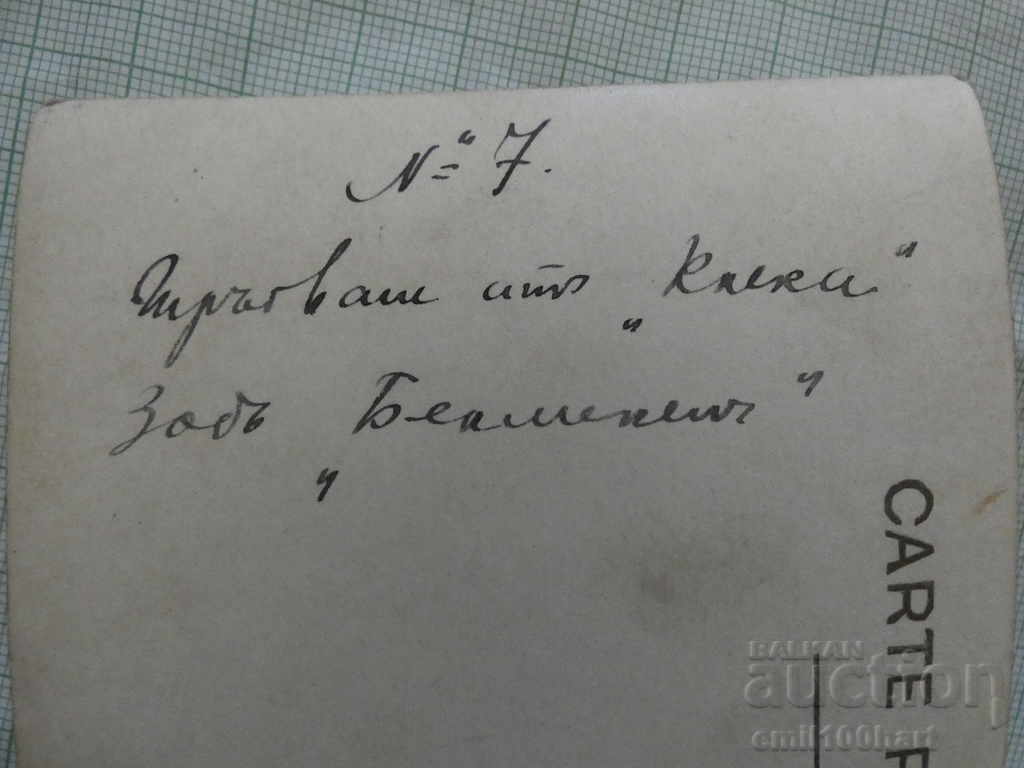 № 7.
Тръгваме отъ „Клека"
Задъ „Беклемето"
CARTE P
BALKAN
auction
emil100hart